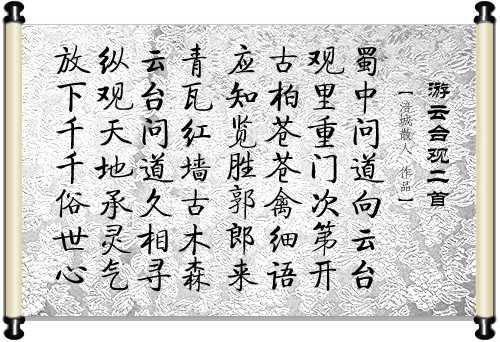 游云台观二首
【涪城散人 作品】
蜀中问道向云台
观里重门次第开
古柏苍苍禽细语
应知览胜郭郎来
青瓦红墙古木森
云台问道久相寻
纵观天地承灵气
放下千千俗世心